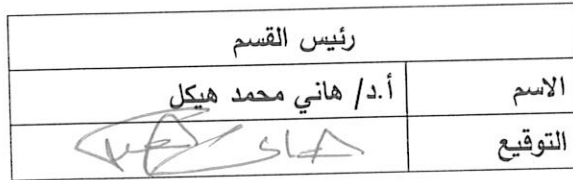 رئيس القسم
الاسم أ.د/ هاني محمد هيكل
التوقيع